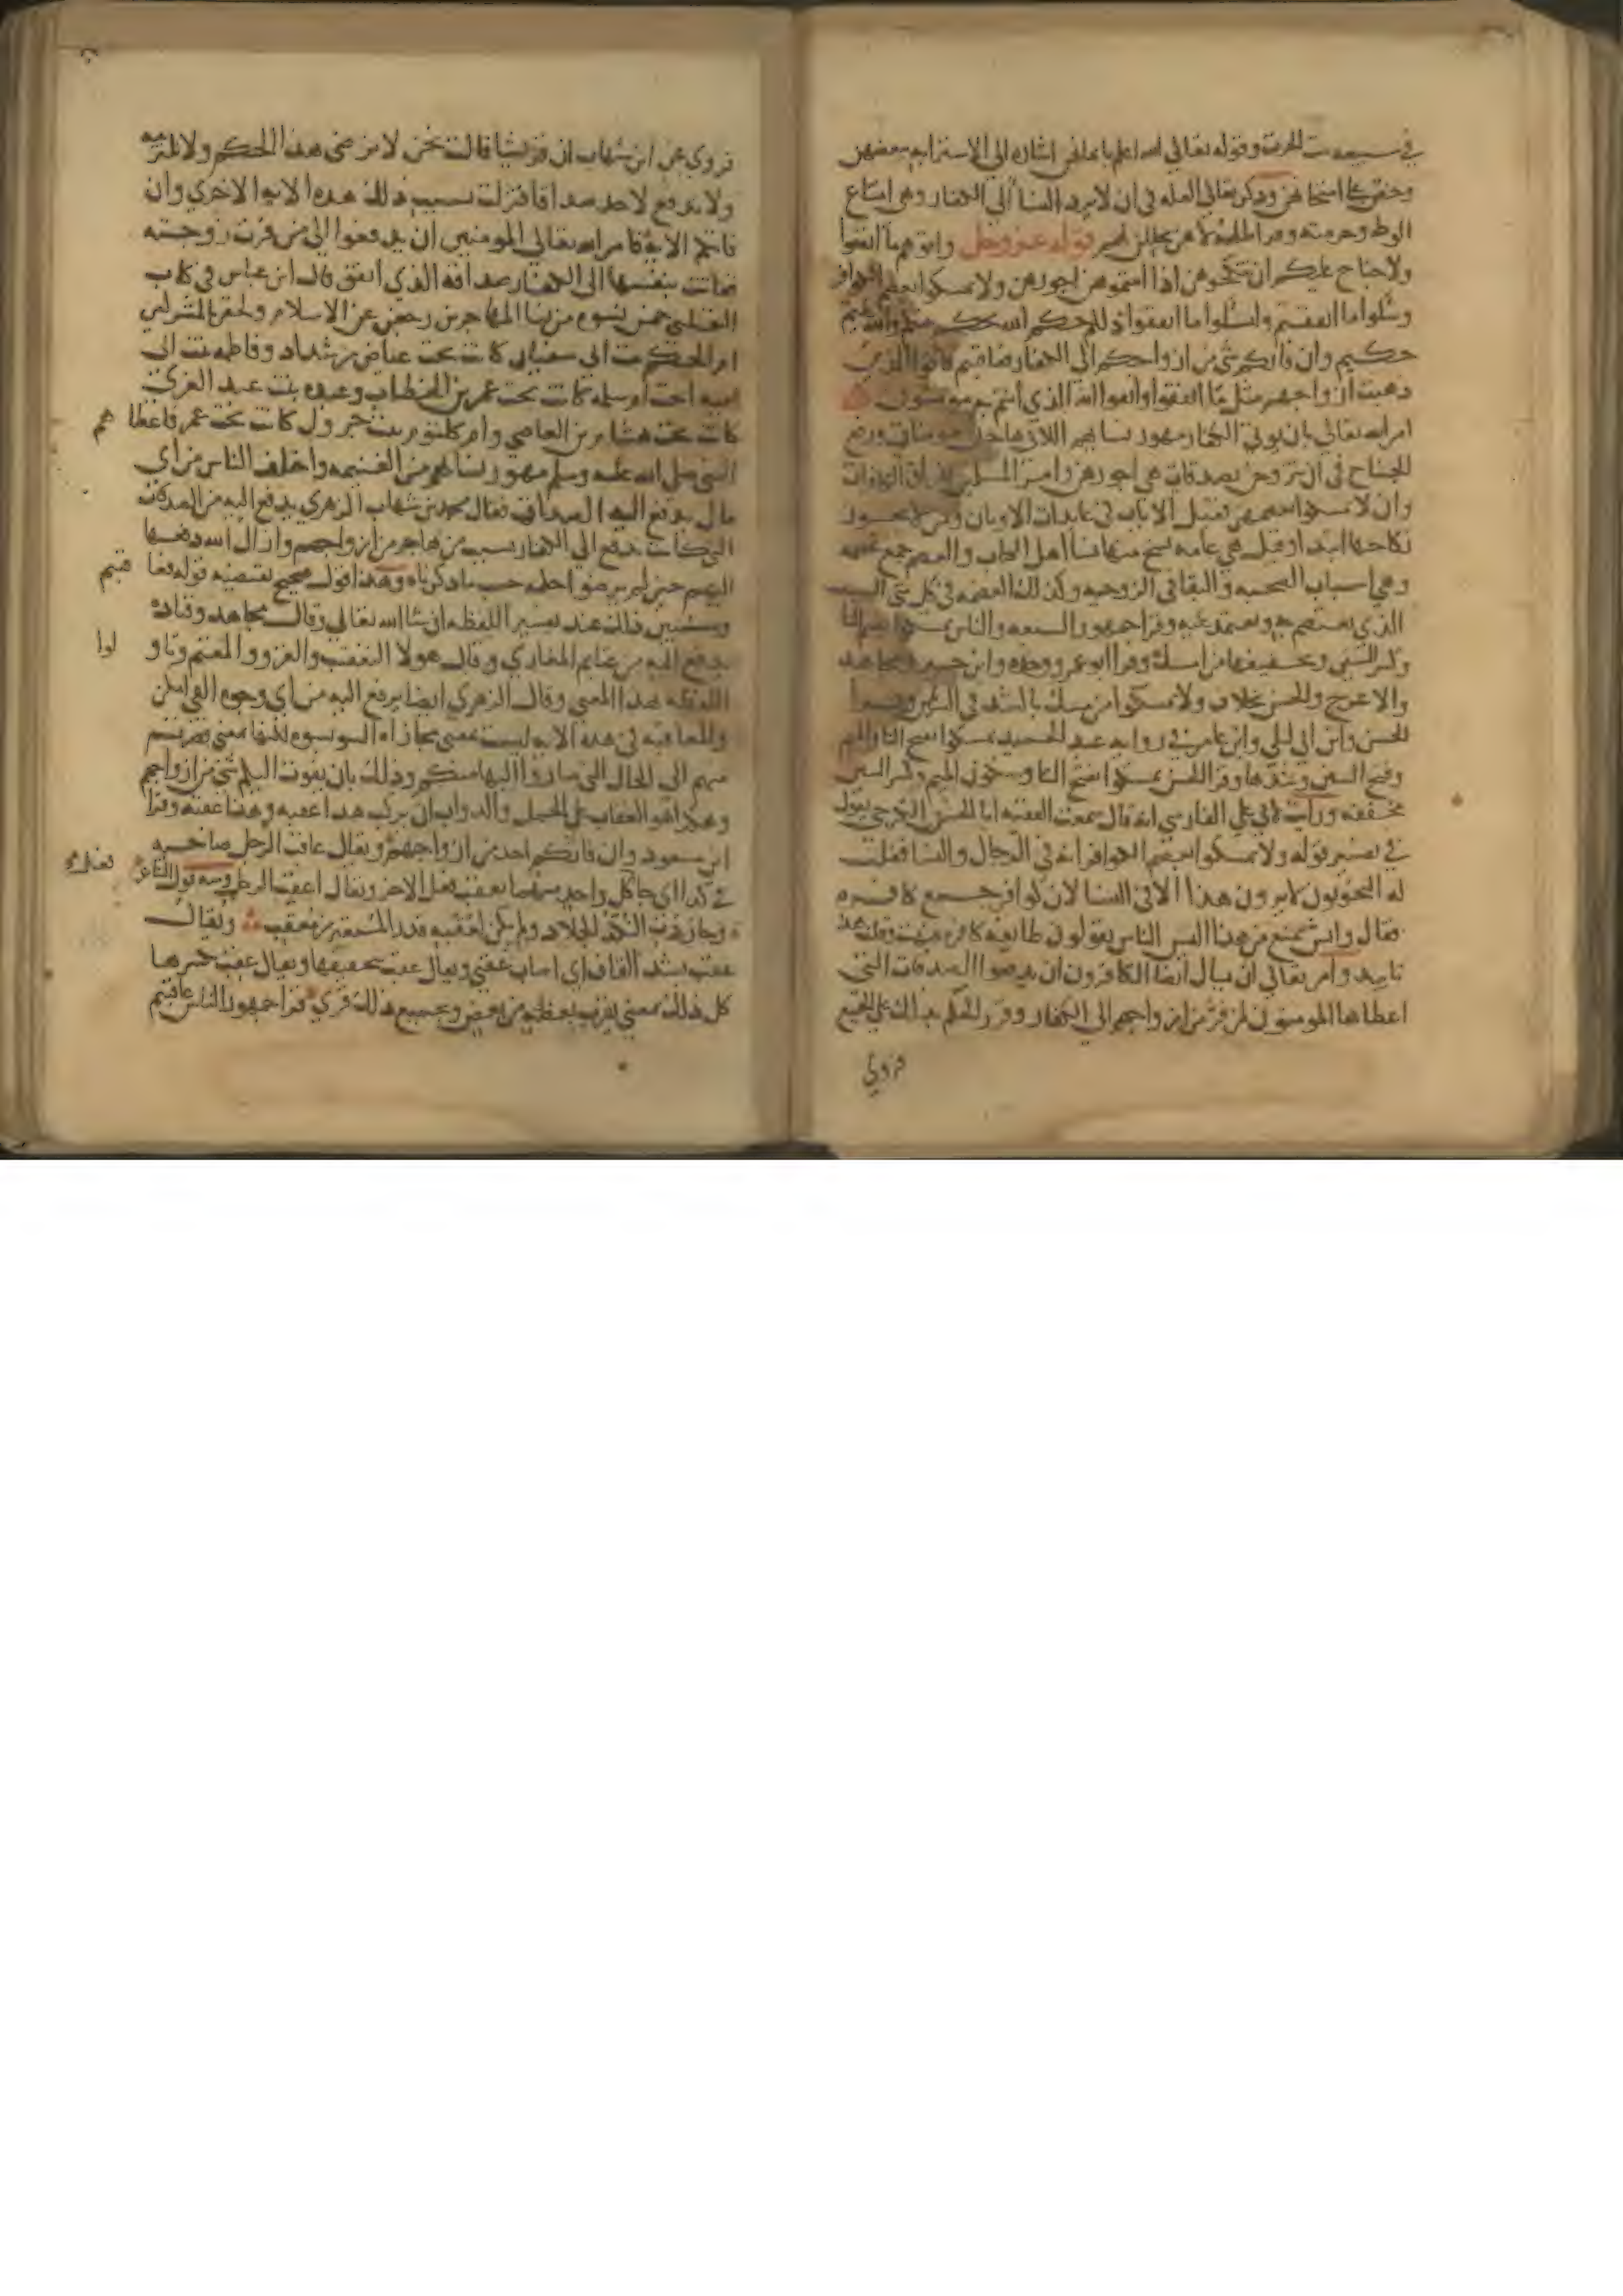 وقوله تعالى الله اعلم بايمانهن اشاره الى الاسترابه ببعضهن
وحض على امتحانهن وذكر تعالى العله في ان لا يرد النسا الى الكفار وهي امتناع
الوطء وحرمته قوله عز وجل واتوهم ما انفقوا
ولا جناح عليكم ان تنكحوهن اذا اتيتموهن اجورهن ولا تمسكوا بعصم الكوافر
وسئلوا ما انفقتم وليسئلوا ما انفقوا ذلكم حكم الله يحكم بينكم والله عليم
حكيم وان فاتكم شي من ازواجكم الى الكفار فعاقبتم فاتوا الذين
ذهبت ازواجهم مثل ما انفقوا واتقوا الله الذي انتم به مومنون
امر الله تعالى بان يوتى الكفار مهور نسايهم اللاتي هاجرن مومنات ورفع
الجناح في ان يتزوجن بصدقات هي اجورهن وامر المسلمين بفراق الكافرات
وان لا يمسكوا بعصمهن فقيل الايات في عابدات الاوثان ومن لا يجوز
نكاحها ابتدا وقيل هي عامه نسخ منها نسا اهل الكتاب والعصم جمع عصمه
وهي اسباب الصحبه والبقا في الزوجيه وكذلك العصمه في كل شي السبب
الذي يعتصم به ويعتمد عليه وقرا جمهور السبعه والناس تمسكوا بضم التا
وكسر السين وتخفيفها من امسك وقرا ابو عمرو وحده وابن جبير ومجاهد
والاعرج والحسن بخلاف ولا تمسكوا من مسك بالشد في السين وقرا
الحسن وابن ابي ليلى وابن عامر في روايه عبد الحميد تمسكوا بفتح التا والميم
وفتح السين وشدها وقرا الحسن تمسكوا بفتح التا وسكون الميم وكسر السين
مخففه ورايت لابي علي الفارسي انه قال سمعت الفقيه ابا الحسن الكرخي يقول
في تفسير قوله ولا تمسكوا بعصم الكوافر انه في الرجال والنسا فقلت
له النحويون لا يرون هذا الا في النسا لان كوافر جمع كافره
فقال وايش يمنع من هذا اليس الناس يقولون طايفه كافره فبهت وقلت هذا
تاييد وامر تعالى ان يسال ايضا الكافرون ان يدفعوا الصدقات التي
اعطاها المومنون لمن فر من ازواجهم الى الكفار وقرر الحكم بذلك على الجميع
فروي
فروي عن ابن شهاب ان قريشا قالت نحن لا نرضى هذا الحكم ولا نلتزمه
ولا ندفع لاحد صداقا فنزلت بسبب ذلك هذه الايه الاخرى وان
فاتكم الايه فامر الله تعالى المومنين ان يدفعوا الى من فرت زوجته
ففاتت بنفسها الى الكفار صداقه الذي انفق قال ابن عباس في كتاب
الثعلبي خمس نسوه من نسا المهاجرين رجعن عن الاسلام ولحقن بالمشركين
ام الحكم بنت ابي سفيان كانت تحت عياض بن شداد وفاطمه بنت ابي
اميه اخت ام سلمه كانت تحت عمر بن الخطاب وعبده بنت عبد العزى
كانت تحت هشام بن العاصي وام كلثوم بنت جرول كانت تحت عمر فاعطاهم
النبي صلى الله عليه وسلم مهور نسايهم من الغنيمه واختلف الناس من اي
مال يدفع اليه الصداق فقال محمد بن شهاب الزهري يدفع اليه من الصدقات
التي كانت تدفع الى الكفار بسبب من هاجر من ازواجهم وازال الله دفعها
اليهم حين لم يرضوا حكمه حسب ما ذكرناه وهذا قول صحيح يقتضيه قوله فعاقبتم
وسنبين ذلك عند تفسير اللفظه ان شا الله تعالى وقال مجاهد وقتاده
يدفع اليه من غنايم المغازي وقال هولا التعقيب والغزو والمغنم وتاولوا
اللفظه بهذا المعنى وقال الزهري ايضا يدفع اليه من اي وجوه الفي امكن
والمعاقبه في هذه الايه ليست بمعنى مجازاه السو بسوء لكنها بمعنى فصرتم
منهم الى الحال التي صاروا اليها منكم وذلك بان يفوت اليكم شي من ازواجهم
وهكذا هو التعاقب على الجمل والدواب ان يركب هذا عقبه وهذا عقبه وقرا
ابن مسعود وان فاتكم احد من ازواجكم ويقال عاقب الرجل صاحبه
في كذا اي جا كل واحد منهما بعقب فعل الاخر ويقال اعقب الرجل ومنه قول الشاعر
ولم يكن لعقبه قدر المستعيرين معقب ويقال
عقب بشد القاف اي اصاب عقبى ويقال عقب بتخفيفها ويقال عقب بكسرها
كل ذلك بمعنى يقرب بعضه من بعض وبجميع ذلك قري قرا جمهور الناس عاقبتم